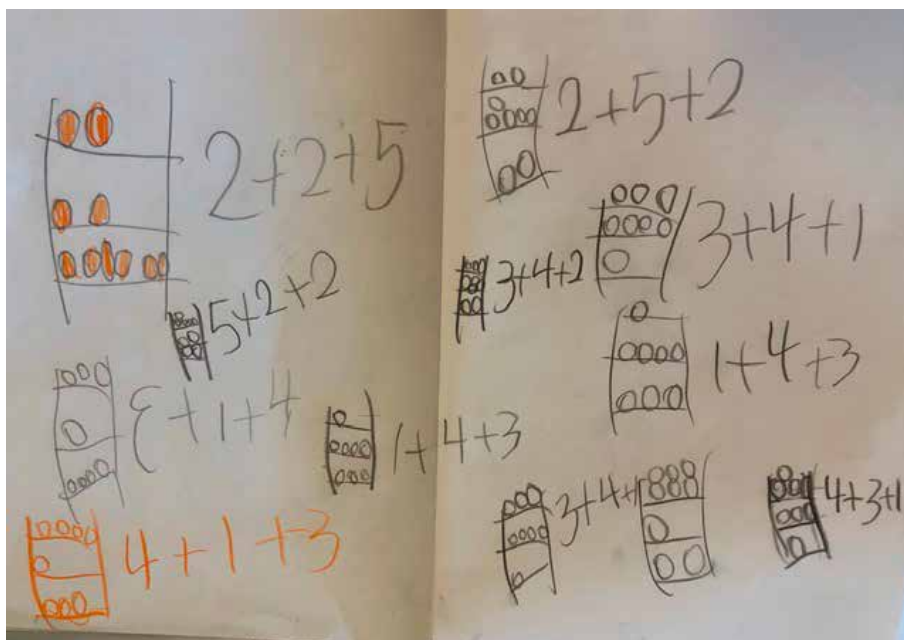 2+2+5
5+2+2
3+1+4
1+4+3
4+1+3
2+5+2
3+4+1
3+4+2
1+4+3
3+4+1
4+3+1